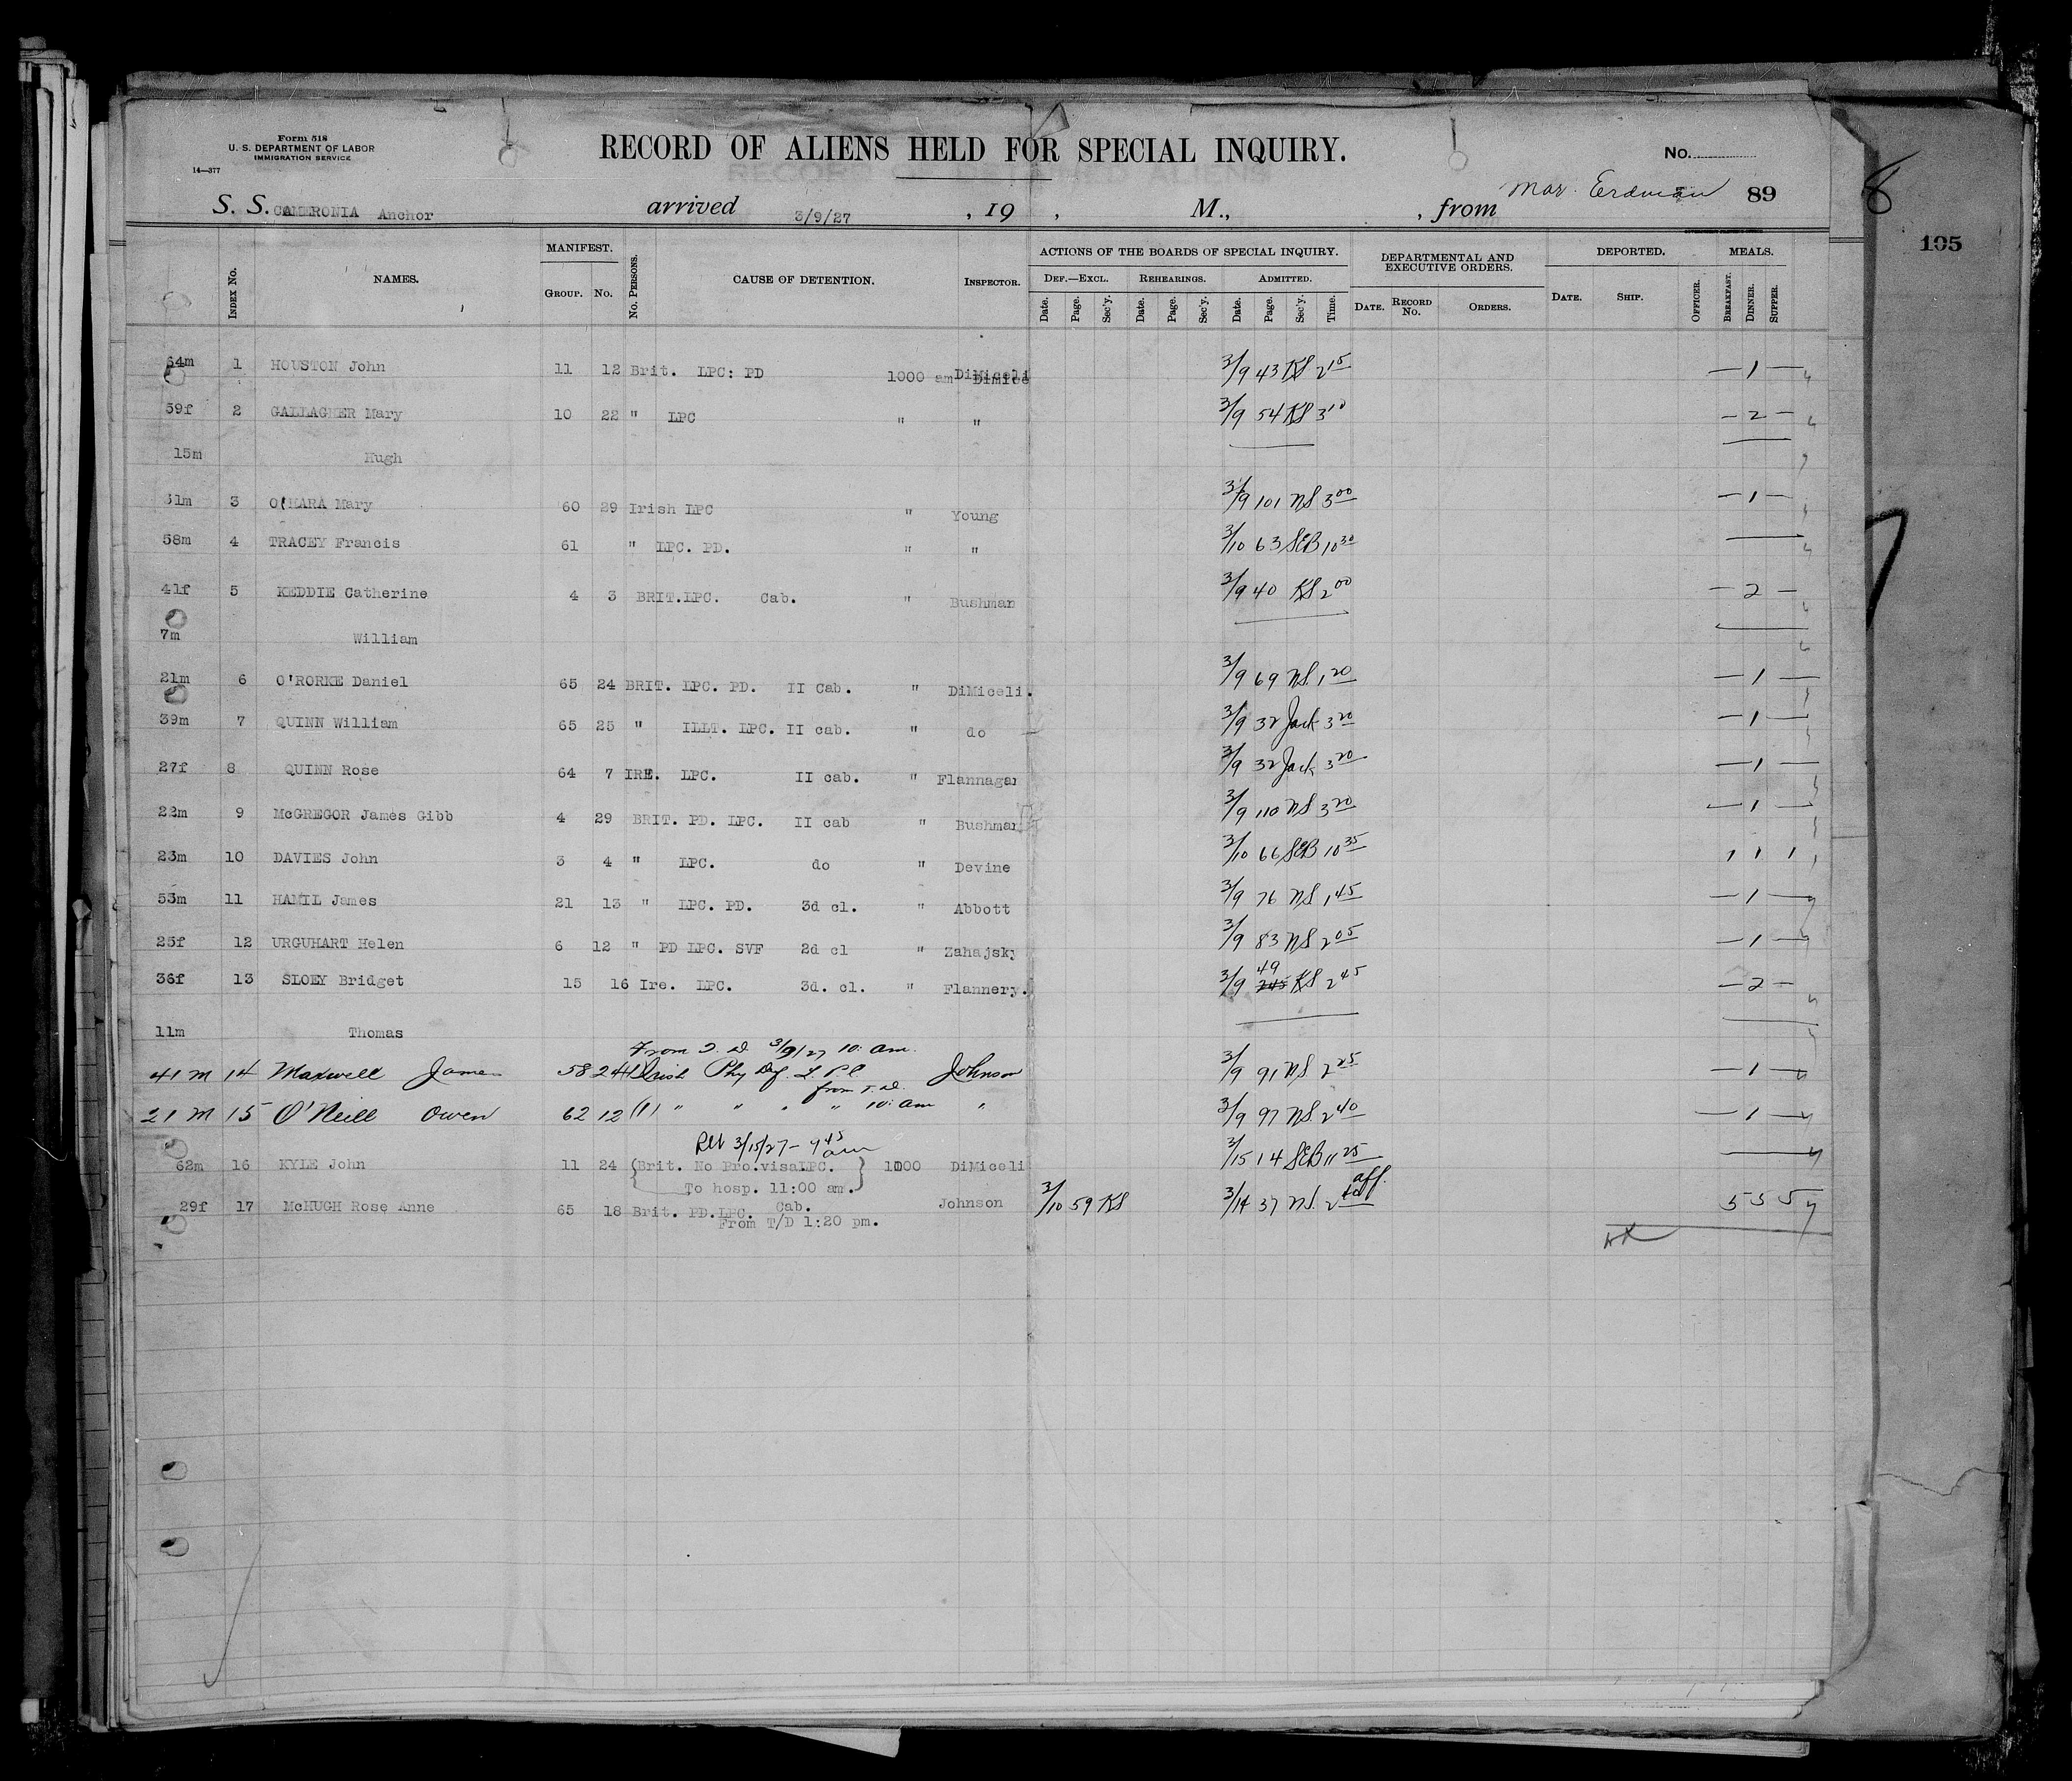 Form 518
U. S. DEPARTMENT OF LABOR
IMMIGRATION SERVICE
14—377
RECORD OF ALIENS HELD FOR SPECIAL INQUIRY.
No.
S. S. CAMERONIA Anchor arrived 3/9/27 , 19 , M., , from Mar. Erdman 89
195
8
INDEX No. NAMES. MANIFEST. GROUP. No. No. PERSONS. CAUSE OF DETENTION. INSPECTOR. ACTIONS OF THE BOARDS OF SPECIAL INQUIRY. DEF.—EXCL. Date. Page. Sec'y. REHEARINGS. Date. Page. Sec'y. ADMITTED. Date. Page. Sec'y. Time. DEPARTMENTAL AND EXECUTIVE ORDERS. DATE. RECORD No. ORDERS. DEPORTED. DATE. SHIP. OFFICER. MEALS. BREAKFAST. DINNER. SUPPER.
64m 1 HOUSTON John 11 12 Brit. LPC: PD 1000 am DiMiceli 3/9 43 KS 2 15 — 1 —
59f 2 GALLAGHER Mary 10 22 " LPC " " 3/9 54 KS 3 10 — 2 —
15m Hugh
31m 3 O'MARA Mary 60 29 Irish LPC " Young 3/9 101 NS 3 00 — 1 —
58m 4 TRACEY Francis 61 " LPC. PD. " " 3/10 63 SEB 10 30
41f 5 KEDDIE Catherine 4 3 BRIT.LPC. Cab. " Bushman 3/9 40 KS 2 00 — 2 —
7m William
21m 6 O'RORKE Daniel 65 24 BRIT. LPC. PD. II Cab. " DiMiceli. 3/9 69 NS 1 20 — 1 —
39m 7 QUINN William 65 25 " ILLT. LPC. II cab. " do 3/9 32 Jack 3 20 — 1 —
27f 8 QUINN Rose 64 7 IRE. LPC. II cab. " Flannagan 3/9 32 Jack 3 20 — 1 —
22m 9 McGREGOR James Gibb 4 29 BRIT. PD. LPC. II cab " Bushman 3/9 110 NS 3 20 — 1 —
23m 10 DAVIES John 3 4 " LPC. do " Devine 3/10 66 SEB 10 35 1 1 1
53m 11 HAMIL James 21 13 " LPC. PD. 3d cl. " Abbott 3/9 76 NS 1 45 — 1 —
25f 12 URGUHART Helen 6 12 " PD LPC. SVF 2d cl " Zahajsky 3/9 83 NS 2 05 — 1 —
36f 13 SLOEY Bridget 15 16 Ire. LPC. 3d. cl. " Flannery. 3/9 49 KS 2 45 — 2 —
11m Thomas
From T. D. 3/9/27 10: am.
41 m 14 Maxwell James 58 24 Irish Phy Def. L. P.C. Johnson 3/9 91 NS 2 25 — 1 —
from T. D.
21 M 15 O'Neill Owen 62 12 (1) " " " " 10: am " 3/9 97 NS. 2 40 — 1 —
Ret 3/15/27 – 9 45 am
62m 16 KYLE John 11 24 (Brit. No Pro.visa LPC. 1000 DiMiceli 3/15 14 SEB 11 25
To hosp. 11:00 am.
29f 17 McHUGH Rose Anne 65 18 Brit. PD.LPC. Cab. Johnson 3/10 59 KS 3/14 37 NS. 2 aff. 5 5 5
From T/D 1:20 pm.